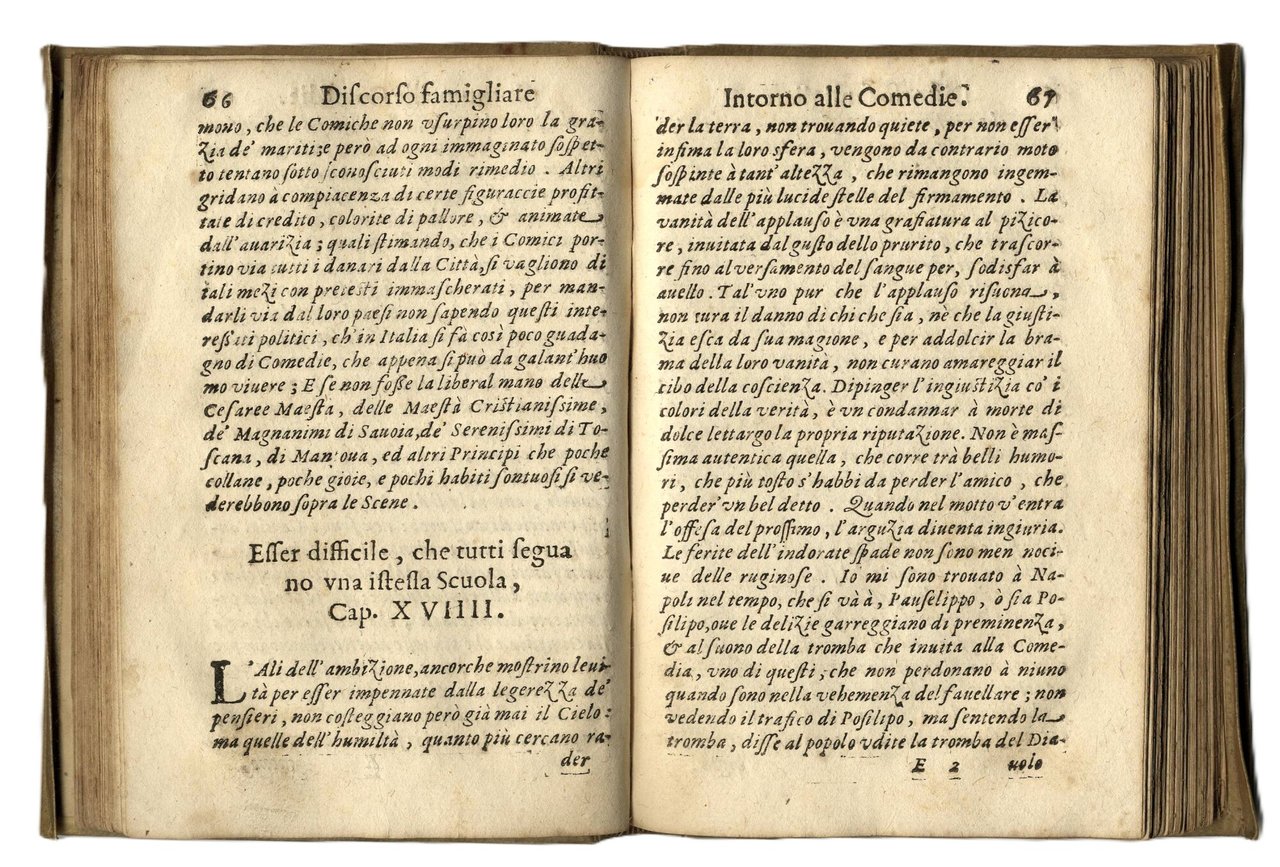 66 Diſcorſo famigliare
mono, che le Comiche non vſurpino loro la gra-
zia de' mariti: e però ad ogni immaginato ſoſpet-
to tentano ſotto ſconoſciuti modi rimedio. Altri
gridano à compiacenza di certe figuraccie profit-
tate di credito, colorite di pallore, & animate
dall'auarizia; quali ſtimando, che i Comici por-
tino via tutti i danari dalla Città, ſi vagliono di
tali mezi con preteſti immaſcherati, per man-
darli via dal loro paeſi non ſapendo queſti inte-
reſſati politici, ch'in Italia ſi fà così poco guada-
gno di Comedie, che appena ſi può da galant'huo
mo viuere; E ſe non foſſe la liberal mano delle
Ceſaree Maeſta, delle Maeſtà Criſtianiſſime,
de' Magnanimi di Sauoia, de' Sereniſſimi di To-
ſcana, di Mantoua, ed altri Principi che poche
collane, poche gioie, e pochi habiti ſontuoſi ſi ve-
derebbono ſopra le Scene.
Eſſer difficile, che tutti ſegua
no vna iſteſſa Scuola,
Cap. XVIIII.
L'Ali dell'ambizione, ancorche moſtrino leui-
tà per eſſer impennate dalla legerezza de'
penſieri, non coſteggiano però già mai il Cielo:
ma quelle dell'humiltà, quanto più cercano ra-
der
Intorno alle Comedie. 67
der la terra, non trouando quiete, per non eſſer
infima la loro sfera, vengono da contrario moto
ſoſpinte à tant'altezza, che rimangono ingem-
mate dalle più lucide ſtelle del firmamento. La
vanità dell'applauſo è vna grafiatura al pizico-
re, inuitata dal guſto dello prurito, che traſcor-
re fino al verſamento del ſangue per, ſodisfar à
quello. Tal'vno pur che l'applauſo riſuona,
non cura il danno di chi che ſia, nè che la giuſti-
zia eſca da ſua magione, e per addolcir la bra-
ma della loro vanità, non curano amareggiar il
cibo della coſcienza. Dipinger l'ingiuſtizia co' i
colori della verità, è vn condannar à morte di
dolce lettargo la propria riputazione. Non è maſ-
ſima autentica quella, che corre trà belli humo-
ri, che più toſto s'habbi da perder l'amico, che
perder'vn bel detto. Quando nel motto v'entra
l'offeſa del proſſimo, l'arguzia diuenta ingiuria.
Le ferite dell'indorate ſpade non ſono men noci-
ue delle ruginoſe. Io mi ſono trouato à Na-
poli nel tempo, che ſi và à, Pauſelippo, ò ſia Po-
ſilipo, oue le delizie garreggiano di preminenza,
& al ſuono della tromba che inuita alla Come-
dia, vno di queſti, che non perdonano à niuno
quando ſono nella vehemenza del fauellare; non
vedendo il trafico di Poſilipo, ma ſentendo la
tromba, diſſe al popolo vdite la tromba del Dia-
E 2 uolo